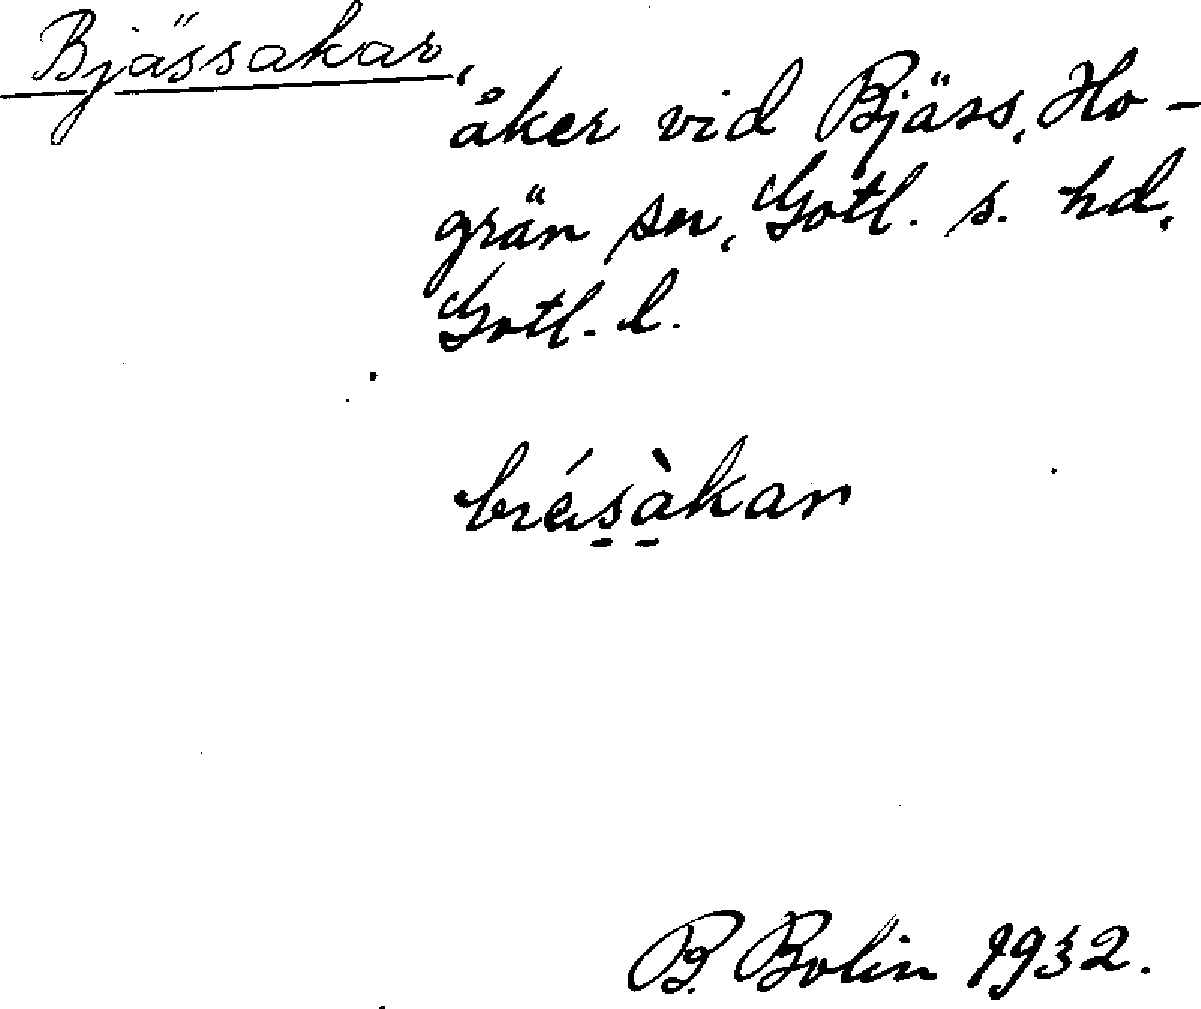 Bjässakar,
åker vid Bjäss, Ho-
grän sn, Gotl. s. hd,
Gotl. l.
bɪésàkar
B. Bolin 1932.